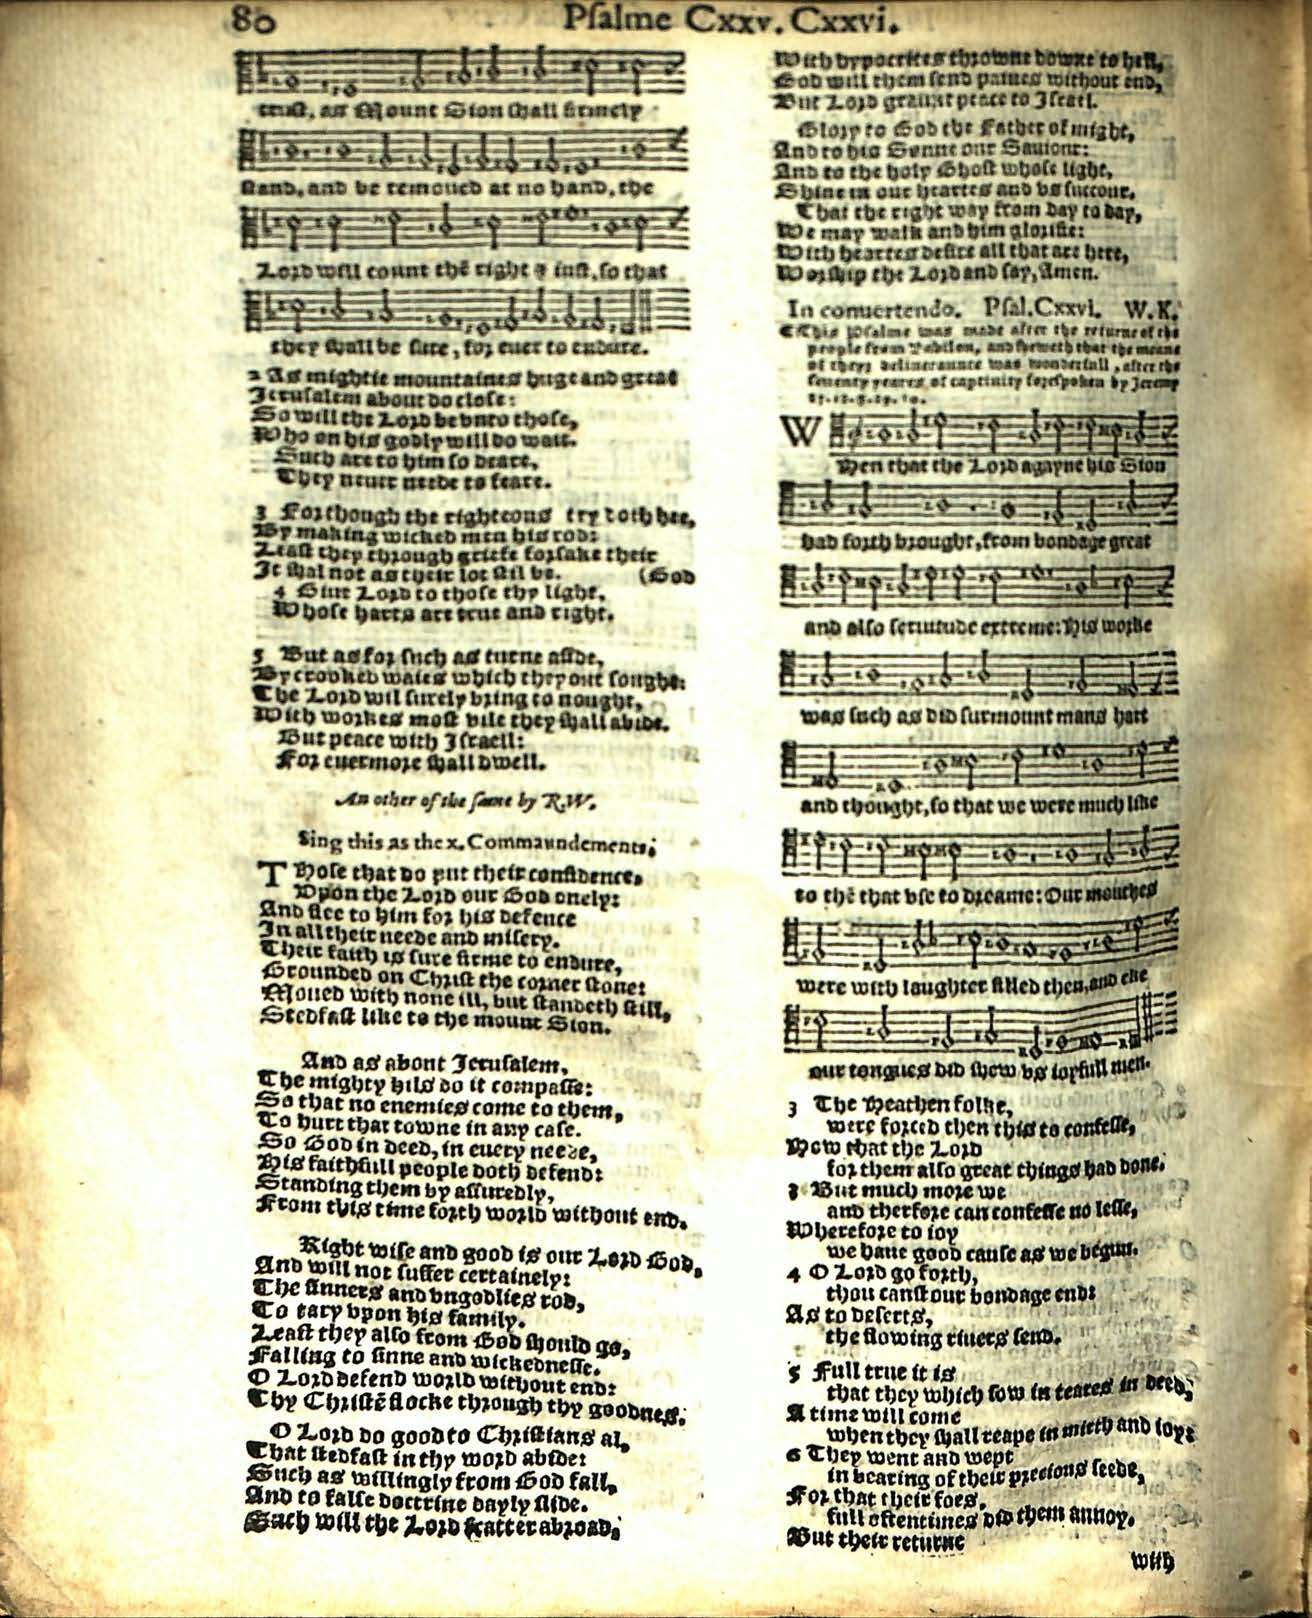 80 Pſalme Cxxv. Cxxvi.
truſt, as Mount Sion ſhall firmely
ſtand, and be remoued at no hand, the
Lord will count thē right & iuſt, ſo that
they ſhall be ſure, for euer to endure.
2 As mightie mountaines huge and great
Jeruſalem about do cloſe:
So will the Lord be vnto thoſe,
Who on his godly will do wait.
Such are to him ſo deare,
They neuer neede to feare.
3 For though the righteous try doth hee,
By making wicked men his rod:
Leaſt they through griefe forſake their
It ſhal not as their lot ſtil be. (God
4 Giue Lord to thoſe thy light,
Whoſe harts are true and right.
5 But as for ſuch as turne aſide,
By crooked waies which they out ſought:
The Lord wil ſurely bring to nought,
With workes moſt vile they ſhall abide.
But peace with Iſraell:
For euermore ſhall dwell.
An other of the ſame by R.W.
Sing this as the x. Commaundements;
THoſe that do put their confidence,
Vpon the Lord our God onely:
And flee to him for his defence
In all their neede and miſery.
Their faith is ſure firme to endure,
Grounded on Chriſt the corner ſtone:
Moued with none ill, but ſtandeth ſtill,
Stedfaſt like to the mount Sion.
And as about Jeruſalem,
The mighty hils do it compaſſe:
So that no enemies come to them,
To hurt that towne in any caſe.
So God in deed, in euery neede,
His faithfull people doth defend:
Standing them by aſſuredly,
From this time forth world without end.
Right wiſe and good is our Lord God,
And will not ſuffer certainely:
The ſinners and vngodlies rod,
To tary vpon his family.
Leaſt they alſo from God ſhould go,
Falling to ſinne and wickedneſſe.
O Lord defend world without end:
Thy Chriſtē flocke through thy goodnes.
O Lord do good to Chriſtians al,
That ſtedfaſt in thy word abide:
Such as willingly from God fall,
And to falſe doctrine dayly ſlide.
Such will the Lord ſcatter abroad,
With hypocrites throwne downe to hell,
God will them ſend paines without end,
But Lord graunt peace to Iſrael.
Glory to God the Father of might,
And to his Sonne our Sauiour:
And to the holy Ghoſt whoſe light,
Shine in our heartes and vs ſuccour.
That the right way from day to day,
We may walk and him glorifie:
With heartes deſire all that are here,
Worſhip the Lord and ſay, Amen.
In conuertendo. Pſal.Cxxvi. W.K.
This Pſalme was made after the returne of the
people from Babilon, and ſheweth that the meane
of theyr deliueraunce was wonderfull, after the
ſeuenty yeares of captiuity foreſpoken by Jeremy
WHen that the Lord agayne his Sion
had forth brought, from bondage great
and alſo ſeruitude extreme: His worke
was ſuch as did ſurmount mans hart
and thought, ſo that we were much like
to thē that vſe to dreame: Our mouthes
were with laughter filled then, and eke
our tongues did ſhew vs ioyfull men.
3 The Heathen folke,
were forced then this to confeſſe,
How that the Lord
for them alſo great things had done.
3 But much more we
and therfore can confeſſe no leſſe,
Wherefore to ioy
we haue good cauſe as we begun.
4 O Lord go forth,
thou canſt our bondage end:
As to deſerts,
the flowing riuers ſend.
5 Full true it is
that they which ſow in teares in deed,
A time will come
when they ſhall reape in mirth and ioy:
6 They went and wept
in bearing of their precious ſeede,
For that their foes,
full oftentimes did them annoy.
But their returne
with